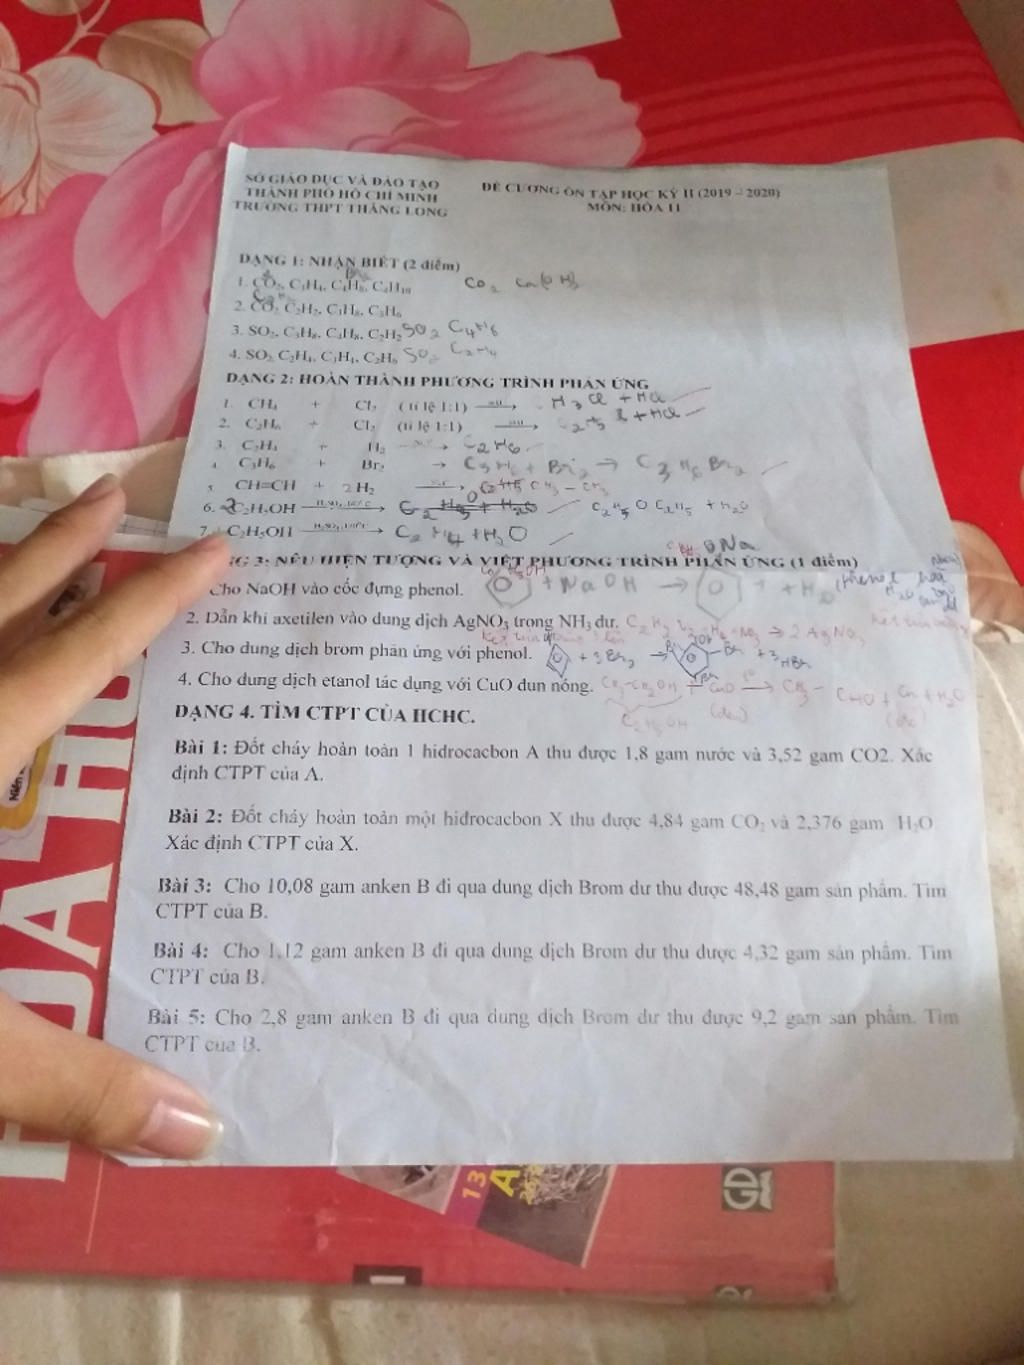 SỞ GIÁO DỤC VÀ ĐÀO TẠO
THÀNH PHỐ HỒ CHÍ MINH
TRƯỜNG THPT THĂNG LONG
ĐỀ CƯƠNG ÔN TẬP HỌC KỲ II (2019 – 2020)
MÔN: HÓA 11
DẠNG 1: NHẬN BIẾT (2 điểm)
1. CO₂, C₂H₄, C₄H₆, C₄H₁₀ CO₂ Ca(OH)₂
2. CO₂ C₂H₂, C₃H₈, C₃H₆
3. SO₂, C₃H₈, C₄H₈, C₂H₂ SO₂ C₄H₈
4. SO₂ C₂H₄, C₃H₄, C₂H₆ SO₂ C₂H₄
DẠNG 2: HOÀN THÀNH PHƯƠNG TRÌNH PHẢN ỨNG
1. CH₄ + Cl₂ (tỉ lệ 1:1) → H₃Cl + HCl
2. C₂H₆ + Cl₂ (tỉ lệ 1:1) → C₂H₅Cl + HCl
3. C₂H₄ + H₂ → C₂H₆
4. C₃H₆ + Br₂ → C₃H₆ + Br₂ → C₃H₆Br₂
5. CH≡CH + 2H₂ → CH₃ – CH₃
6. 2C₂H₅OH → C₂H₅OC₂H₅ + H₂O
7. C₂H₅OH → C₂H₄ + H₂O
NG 3: NÊU HIỆN TƯỢNG VÀ VIẾT PHƯƠNG TRÌNH PHẢN ỨNG (1 điểm)
Cho NaOH vào cốc đựng phenol. + NaOH → ONa + H₂O
2. Dẫn khí axetilen vào dung dịch AgNO₃ trong NH₃ dư.
3. Cho dung dịch brom phản ứng với phenol. + 3Br₂ → + 3HBr
4. Cho dung dịch etanol tác dụng với CuO đun nóng. CH₃-CH₂OH + CuO → CH₃ – CHO + Cu + H₂O
C₂H₅OH (đen) (đỏ)
DẠNG 4. TÌM CTPT CỦA HCHC.
Bài 1: Đốt cháy hoàn toàn 1 hidrocacbon A thu được 1,8 gam nước và 3,52 gam CO2. Xác
định CTPT của A.
Bài 2: Đốt cháy hoàn toàn một hiđrocacbon X thu được 4,84 gam CO₂ và 2,376 gam H₂O
Xác định CTPT của X.
Bài 3: Cho 10,08 gam anken B đi qua dung dịch Brom dư thu được 48,48 gam sản phẩm. Tìm
CTPT của B.
Bài 4: Cho 1,12 gam anken B đi qua dung dịch Brom dư thu được 4,32 gam sản phẩm. Tìm
CTPT của B.
Bài 5: Cho 2,8 gam anken B đi qua dung dịch Brom dư thu được 9,2 gam sản phẩm. Tìm
CTPT của B.
13
A
GD